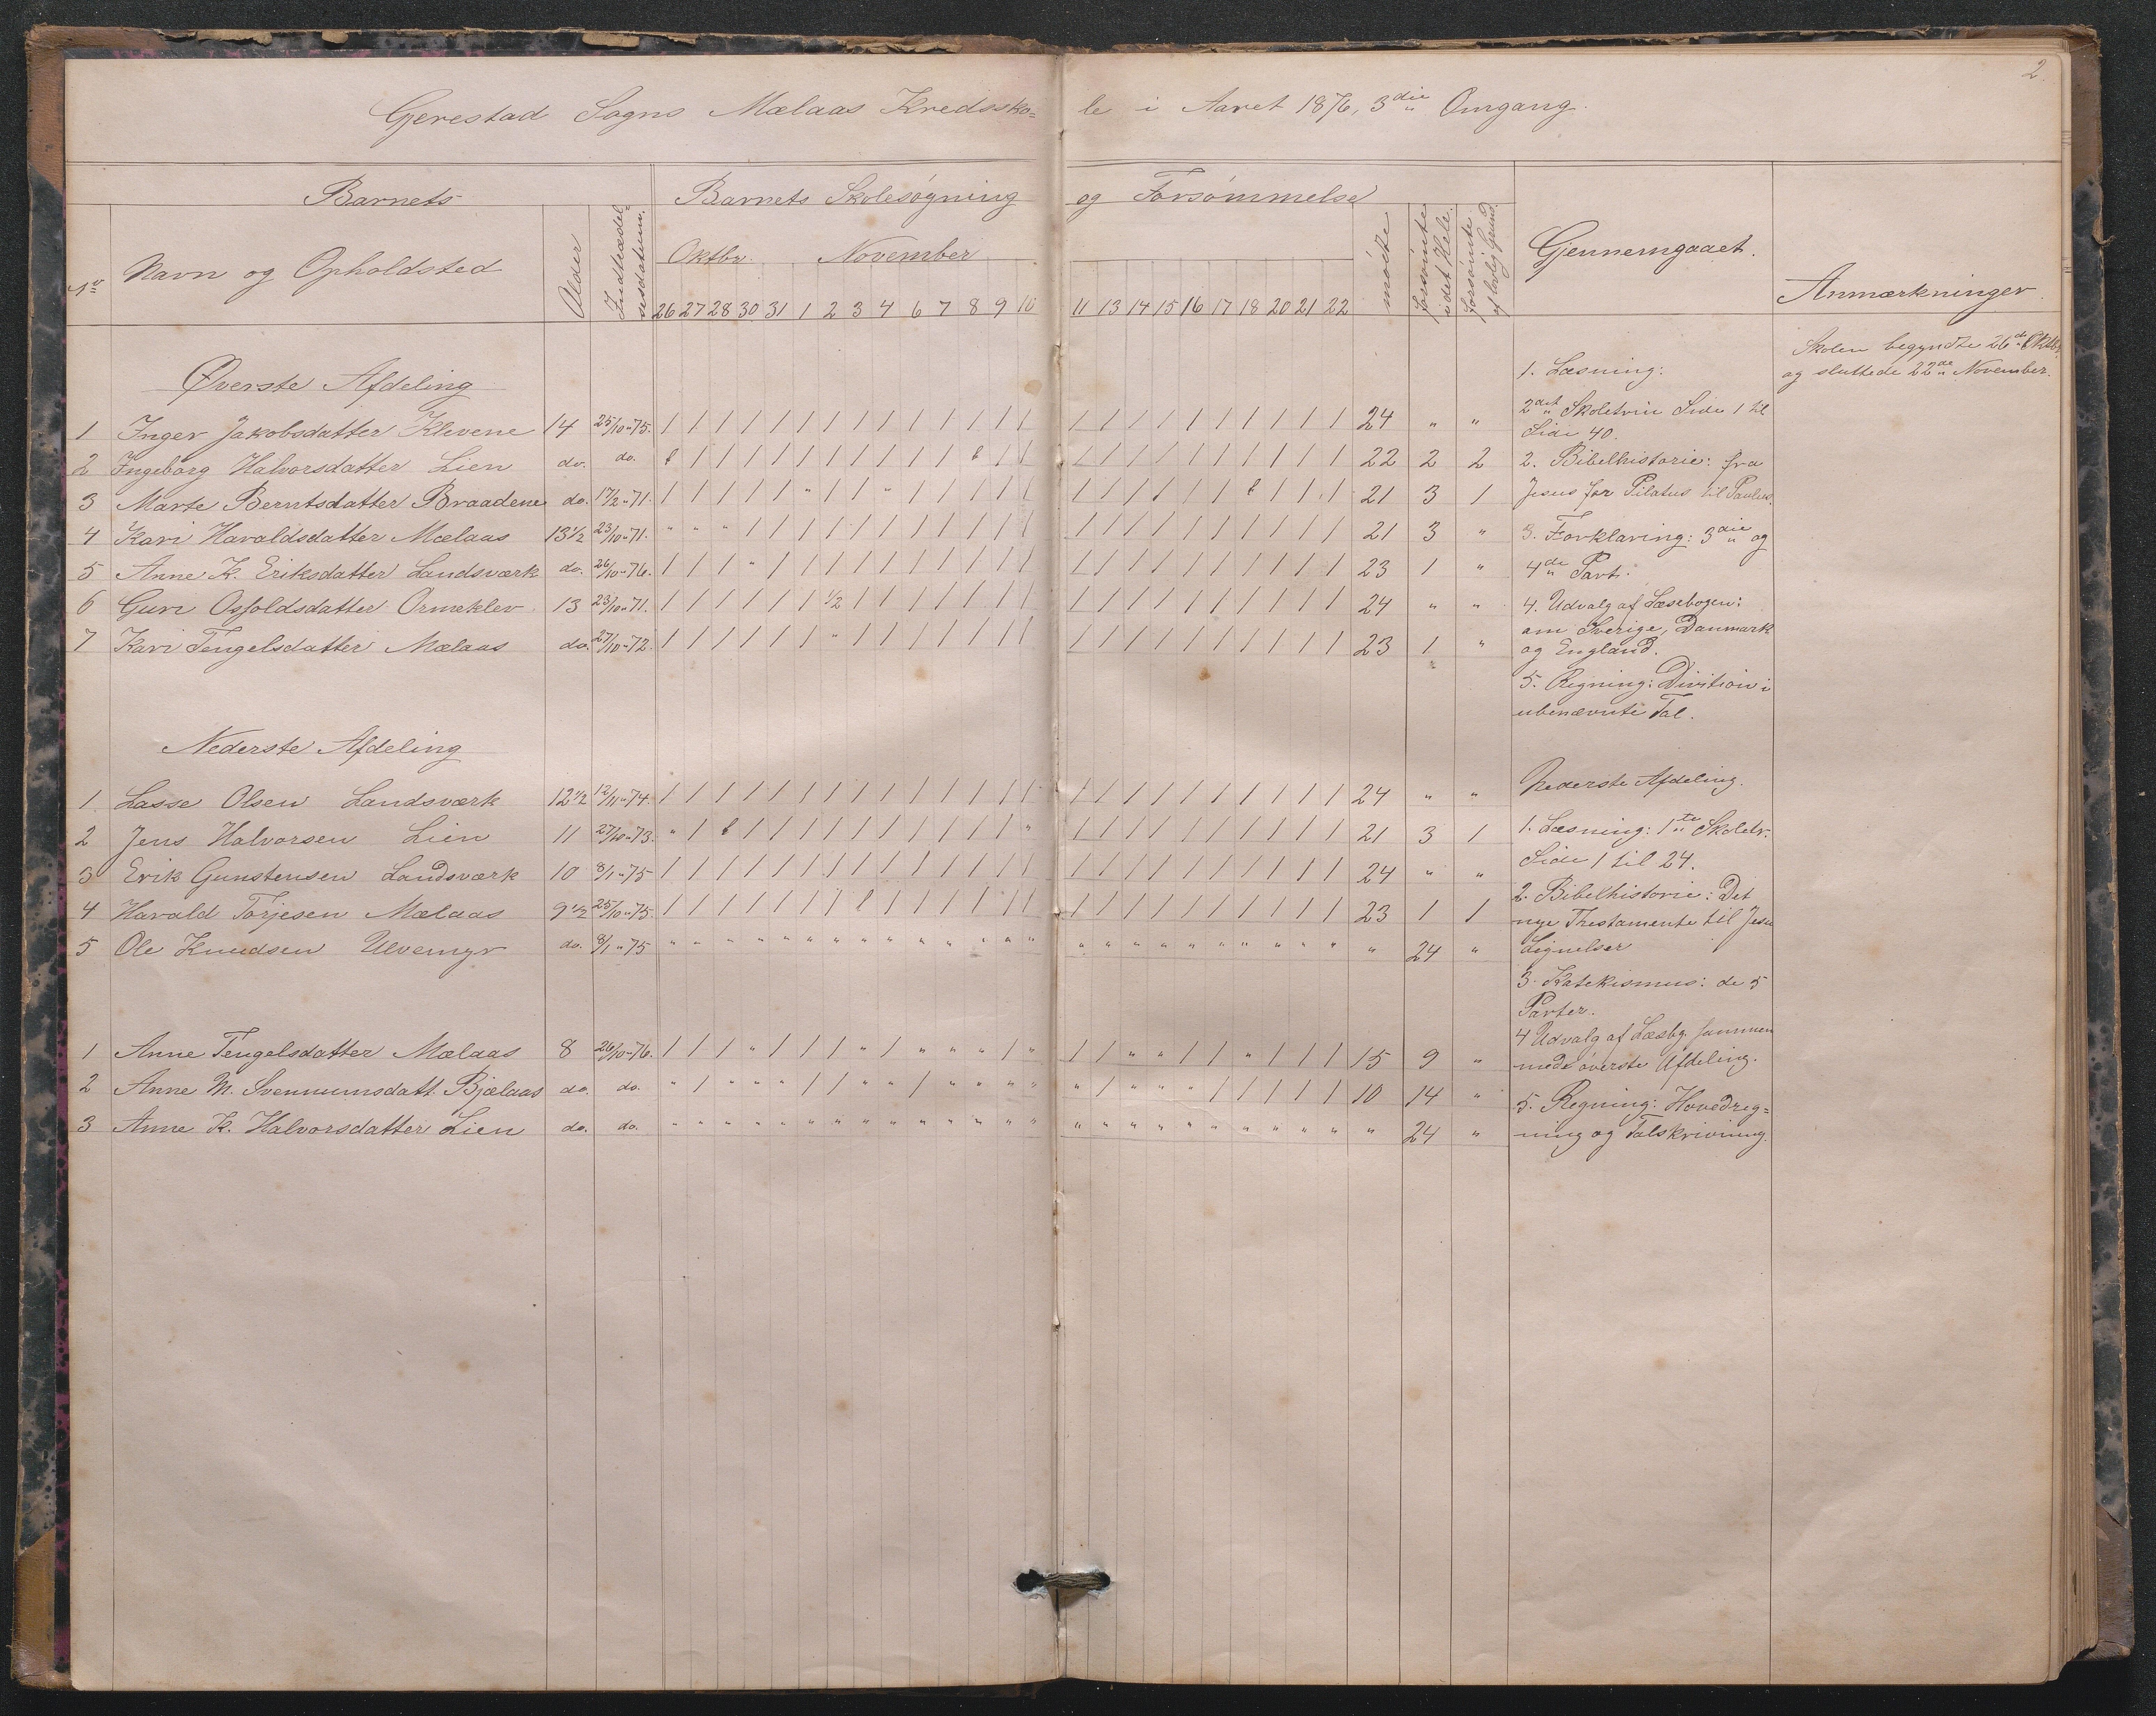 2.
Gjerestad Sogns Mælaas Kredssko=le i Aaret 1876, 3die Omgang.
Barnets
Barnets Skolesøgning og Forsømmelse
No
Navn og Opholdsted
Alder
Indtrædel=
sesdatum.
Oktbr. November
26 27 28 30 31 1 2 3 4 6 7 8 9 10 11 13 14 15 16 17 18 20 21 22
mødte
forsømte
i det Hele.
forsømte
af lovlig Grund.
Gjennemgaaet.
Anmærkninger.
Skolen begyndte 26de Oktbr.
og sluttede 22de November.
Øverste Afdeling
1 Inger Jakobsdatter Klevene 14 25/10 " 75. / / / / / / / / / / / / / / / / / / / / / / / / 24 " "
2 Ingeborg Halvorsdatter Lien do. do. f / / / / / / / / / / f / / / / / / / / / / / / 22 2 2
3 Marte Berntsdatter Braadene do. 17/2 " 71. / / / / / " / / " / / / / / / / / / / / f / / / 21 3 1
4 Kari Haraldsdatter Mælaas 13 1/2 23/10 " 71. " " " / / / / / / / / / / / / / / / / / / / / / 21 3 "
5 Anne K. Eriksdatter Landsværk do. 26/10 " 76. / / / " / / / / / / / / / / / / / / / / / / / / 23 1 "
6 Guri Osfoldsdatter Ormeklev 13 23/10 " 71. / / / / / / 1/2 / / / / / / / / / / / / / / / / / 24 " "
7 Kari Tengelsdatter Mælaas do. 27/10 " 72. / / / / / / " / / / / / / / / / / / / / / / / / 23 1 "
Nederste Afdeling
1 Lasse Olsen Landsværk 12 1/2 12/11 " 74. / / / / / / / / / / / / / / / / / / / / / / / / 24 " "
2 Jens Halvorsen Lien 11 27/10 " 73. " / f / / / / / / / / / / " / / / / / / / / / / 21 3 1
3 Erik Gunstensen Landsværk 10 8/1 " 75 / / / / / / / / / / / / / / / / / / / / / / / / 24 " "
4 Harald Torjesen Mælaas 9 1/2 25/10 " 75. / / / / / / / f / / / / / / / / / / / / / / / / 23 1 1
5 Ole Knudsen Ulvemyr do. 8/1 " 75 " " " " " " " " " " " " " " " " " " " " " " " " " 24 "
1 Anne Tengelsdatter Mælaas 8 26/10 " 76. / / / " / / / " / " " " / " / / " " / / " / / / 15 9 "
2 Anne M. Svennumsdatt. Bjælaas do. do. " / " " " / / " " / " " " " " / " " " / / / / / 10 14 "
3 Anne K. Halvorsdatter Lien do. do. " " " " " " " " " " " " " " " " " " " " " " " " " 24 "
1. Læsning:
2det Skoletrin Side 1 til
Side 40.
2. Bibelhistorie: fra
Jesus for Pilatus til Paulus.
3. Forklaring: 3die og
4de Part.
4. Udvalg af Læsebogen:
om Sverige, Danmark
og England.
5. Regning: Division i
ubenævnte Tal.
Nederste Afdeling.
1. Læsning: 1ste Skoletr.
Side 1 til 24.
2. Bibelhistorie: Det
nye Thestamente til Jesu
Lignelser
3. Katekismus: de 5
Parter.
4 Udvalg af Læsbg sammen
med øverste Afdeling.
5. Regning: Hovedreg=
ning og Talskrivning.